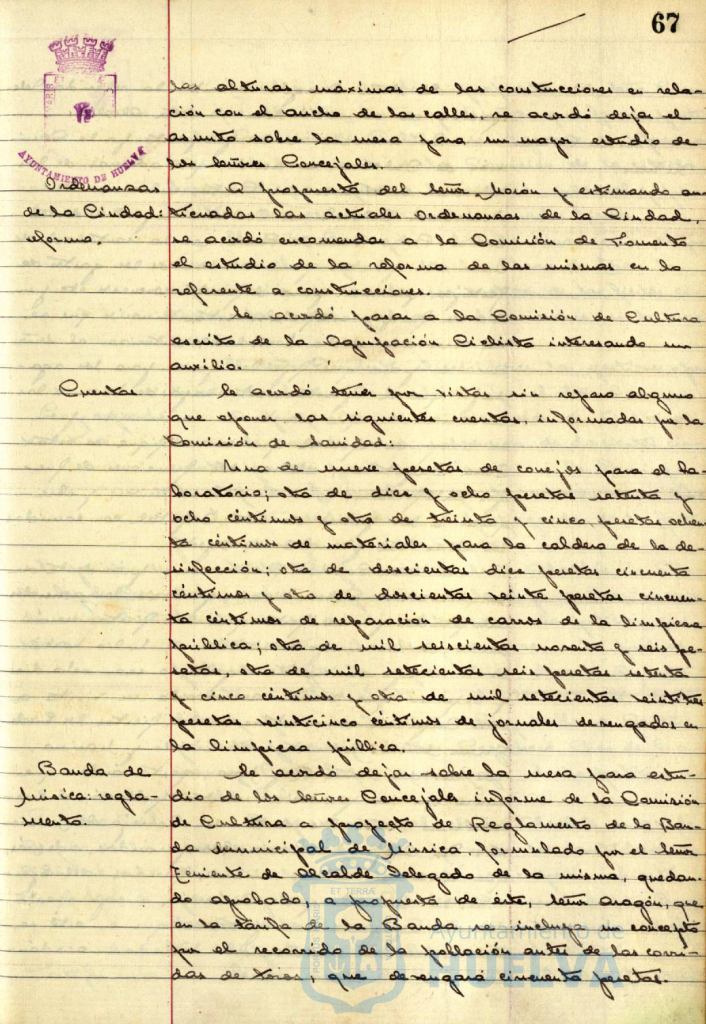 67
AYUNTAMIENTO DE HUELVA
las alturas máximas de las construcciones en rela-
ción con el ancho de las calles, se acordó dejar el
asunto sobre la mesa para un mayor estudio de
los señores Concejales.
Ordenanzas
de la Ciudad:
reforma.
A propuesta del señor Morón y estimando an-
ticuadas las actuales Ordenanzas de la Ciudad,
se acordó encomendar a la Comisión de Fomento
el estudio de la reforma de las mismas en lo
referente a construcciones.
Se acordó pasar a la Comisión de Cultura
escrito de la Agrupación Ciclista interesando un
auxilio.
Cuentas
Se acordó tener por vistas sin reparo alguno
que oponer las siguientes cuentas, informadas por la
Comisión de Sanidad:
Una de nueve pesetas de conejos para el La-
boratorio; otra de diez y ocho pesetas setenta y
ocho céntimos y otra de treinta y cinco pesetas ochen-
ta céntimos de materiales para la caldera de la de-
sinfección; otra de doscientas diez pesetas cincuenta
céntimos y otra de doscientas veinte pesetas cincuen-
ta céntimos de reparación de carros de la limpieza
pública; otra de mil seiscientas noventa y seis pe-
setas, otra de mil setecientas seis pesetas setenta
y cinco céntimos y otra de mil setecientas veintitres
pesetas veinticinco céntimos de jornales devengados en
la limpieza pública.
Banda de
Música: regla-
mento.
Se acordó dejar sobre la mesa para estu-
dio de los señores Concejales informe de la Comisión
de Cultura a proyecto de Reglamento de la Ban-
da municipal de Música, formulado por el señor
Teniente de Alcalde Delegado de la misma, quedan-
do aprobado, a propuesta de éste, señor Aragón, que
en la tarifa de la Banda se incluya un concepto
por el recorrido de la población antes de las corri-
das de toros, que devengará cincuenta pesetas.
ET TERRÆ
Ayuntamiento de
HUELVA